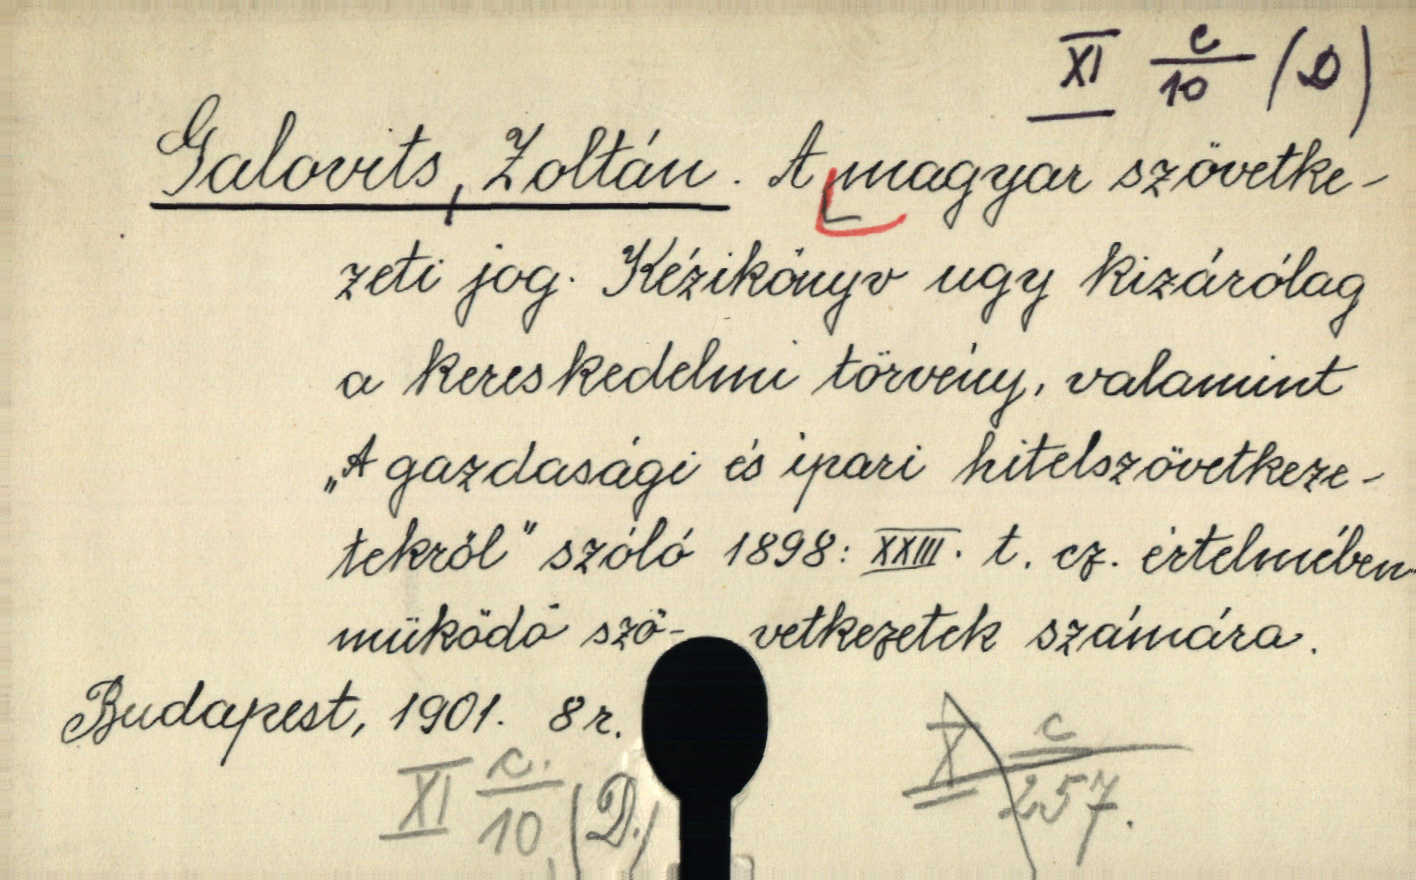 XI c/10 (D)
Galovits, Zoltán. A magyar szövetke-
zeti jog. Kézikönyv ugy kizárólag
a kereskedelmi törvény, valamint
„A gazdasági és ipari hitelszövetkeze-
tekről" szóló 1898: XXIII. t. cz. értelmében
müködő szö- vetkezetek számára.
Budapest, 1901. 8r.
XI c./10. (D.)
X c/257.